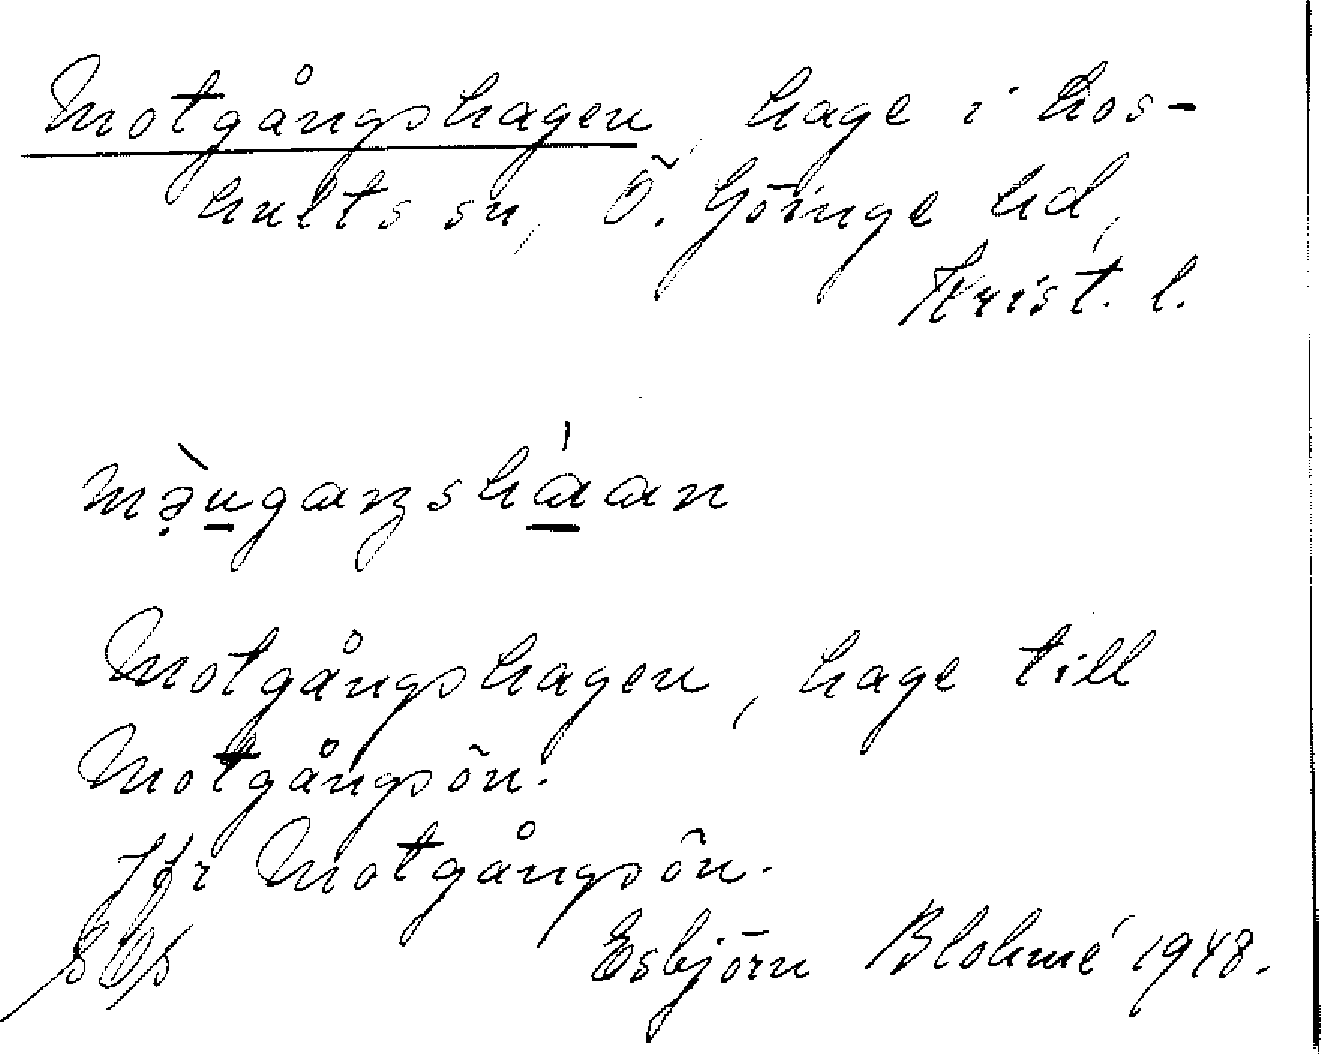 Motgångshagen, hage i Los-
hults sn, Ö. Göinge hd,
Krist. l.
Motgångshagen, hage till
Motgångsön.
Jfr Motgångsön.
Esbjörn Blohmé 1948.